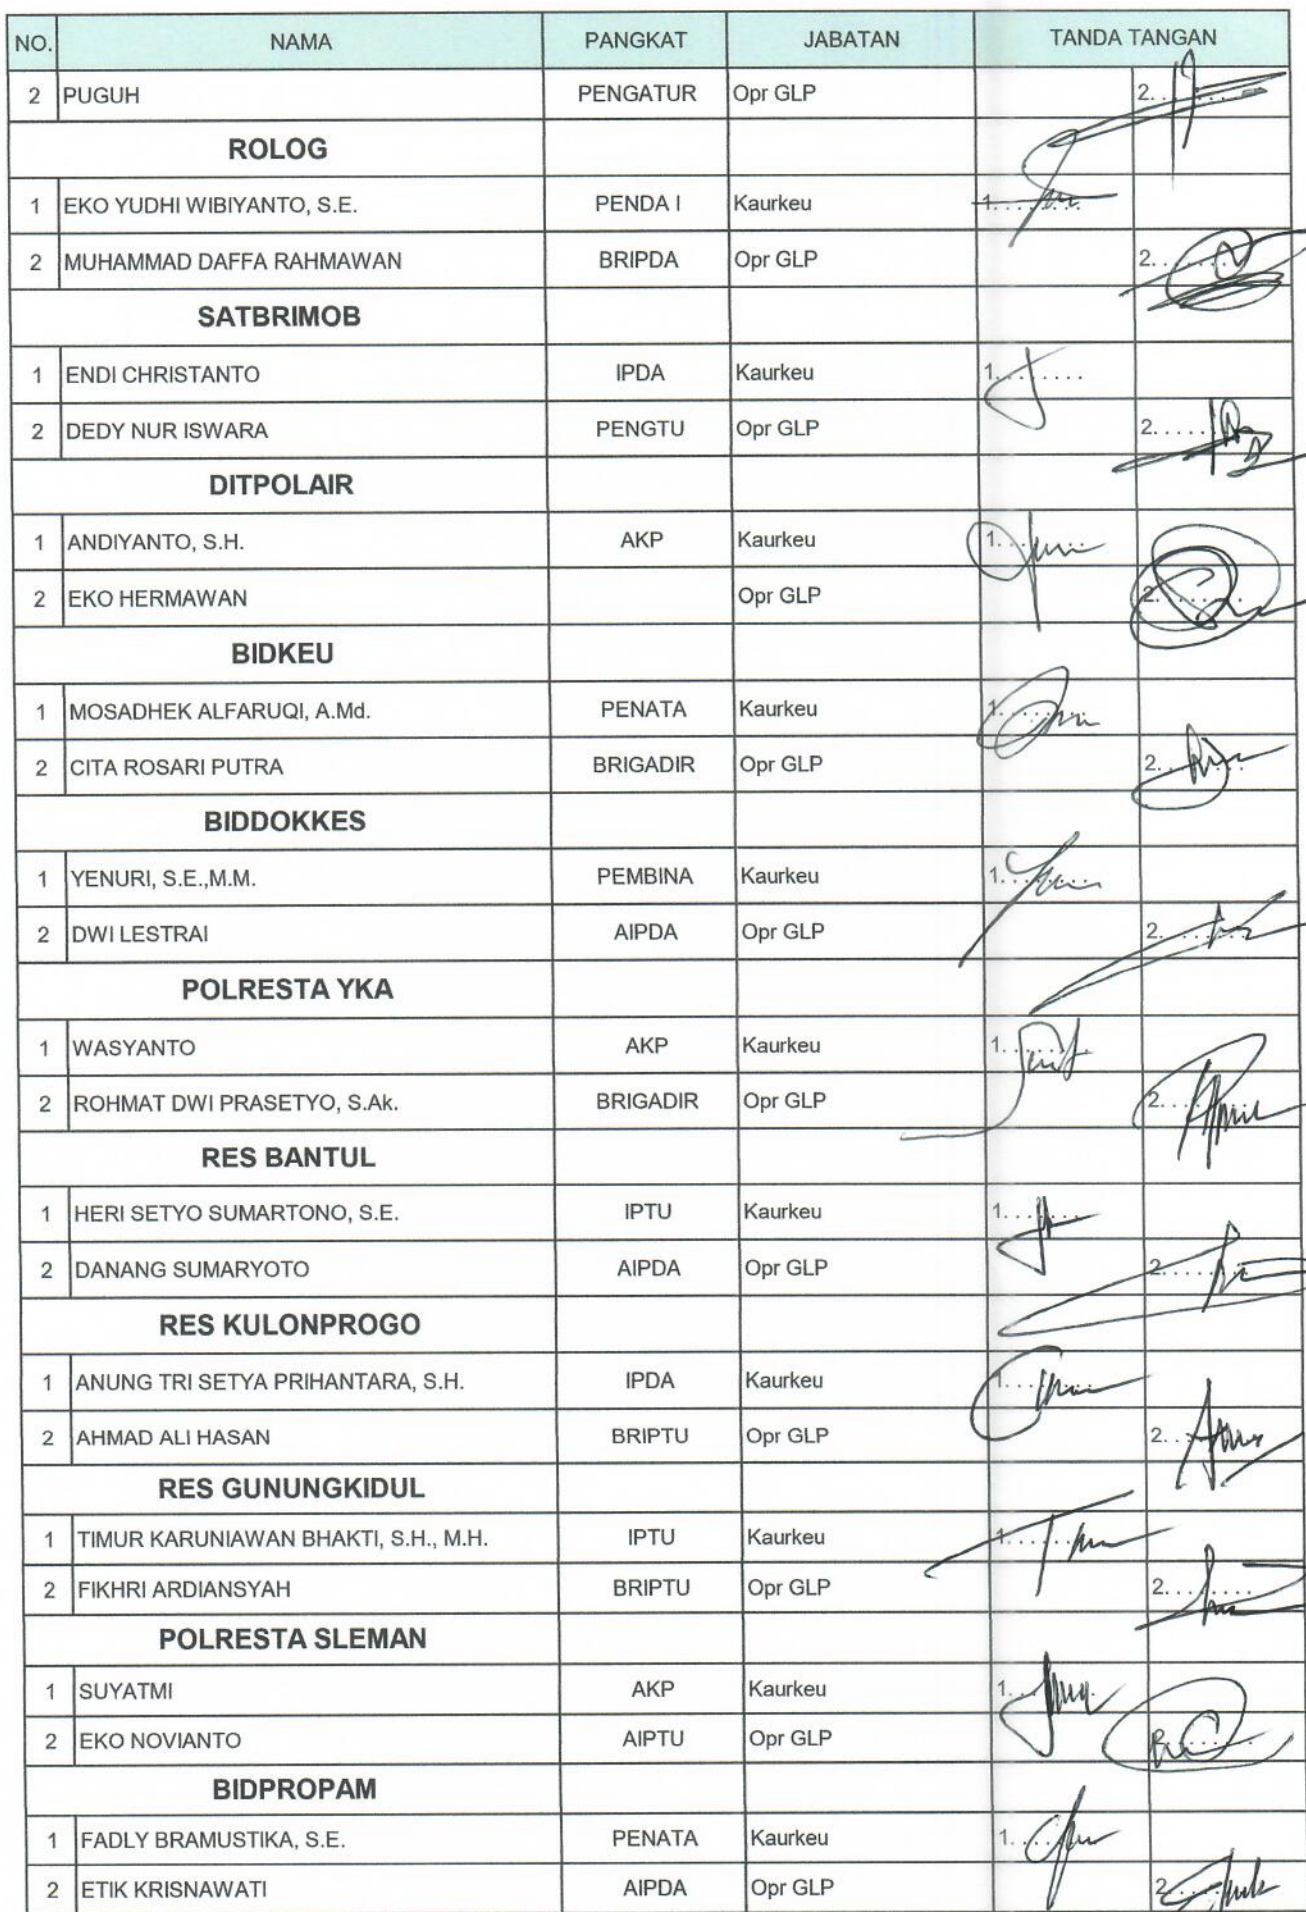 NO. NAMA PANGKAT JABATAN TANDA TANGAN
2 PUGUH PENGATUR Opr GLP 2.
ROLOG
1 EKO YUDHI WIBIYANTO, S.E. PENDA I Kaurkeu 1.
2 MUHAMMAD DAFFA RAHMAWAN BRIPDA Opr GLP 2.
SATBRIMOB
1 ENDI CHRISTANTO IPDA Kaurkeu 1.
2 DEDY NUR ISWARA PENGTU Opr GLP 2.
DITPOLAIR
1 ANDIYANTO, S.H. AKP Kaurkeu 1.
2 EKO HERMAWAN Opr GLP 2.
BIDKEU
1 MOSADHEK ALFARUQI, A.Md. PENATA Kaurkeu 1.
2 CITA ROSARI PUTRA BRIGADIR Opr GLP 2.
BIDDOKKES
1 YENURI, S.E.,M.M. PEMBINA Kaurkeu 1.
2 DWI LESTRAI AIPDA Opr GLP 2.
POLRESTA YKA
1 WASYANTO AKP Kaurkeu 1.
2 ROHMAT DWI PRASETYO, S.Ak. BRIGADIR Opr GLP 2.
RES BANTUL
1 HERI SETYO SUMARTONO, S.E. IPTU Kaurkeu 1.
2 DANANG SUMARYOTO AIPDA Opr GLP 2.
RES KULONPROGO
1 ANUNG TRI SETYA PRIHANTARA, S.H. IPDA Kaurkeu 1.
2 AHMAD ALI HASAN BRIPTU Opr GLP 2.
RES GUNUNGKIDUL
1 TIMUR KARUNIAWAN BHAKTI, S.H., M.H. IPTU Kaurkeu 1.
2 FIKHRI ARDIANSYAH BRIPTU Opr GLP 2.
POLRESTA SLEMAN
1 SUYATMI AKP Kaurkeu 1.
2 EKO NOVIANTO AIPTU Opr GLP
BIDPROPAM
1 FADLY BRAMUSTIKA, S.E. PENATA Kaurkeu 1.
2 ETIK KRISNAWATI AIPDA Opr GLP 2.